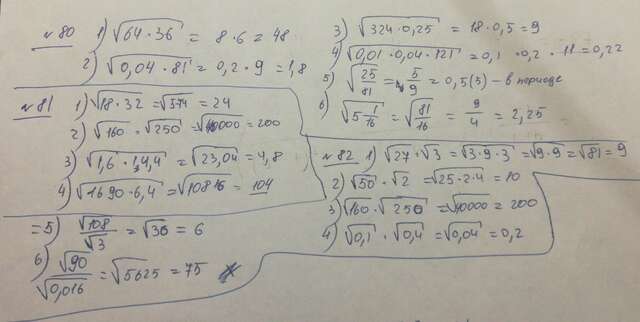 № 80 1) √64·36 = 8·6 = 48
2) √0,04·81 = 0,2·9 = 1,8
3) √324·0,25 = 18·0,5 = 9
4) √0,01·0,04·121 = 0,1·0,2·11 = 0,22
5) √25/81 = 5/9 = 0,5(5) – в периоде
6) √5 1/16 = √81/16 = 9/4 = 2,25
№ 81 1) √18·32 = √574 = 24
2) √160·√250 = √40000 = 200
3) √1,6·14,4 = √23,04 = 4,8
4) √1690·6,4 = √10816 = 104
= 5) √108/√3 = √36 = 6
6) √90/√0,016 = √5625 = 75
№ 82 1) √27·√3 = √3·9·3 = √9·9 = √81 = 9
2) √50·√2 = √25·2·4 = 10
3) √160·√250 = √40000 = 200
4) √0,1·√0,4 = √0,04 = 0,2